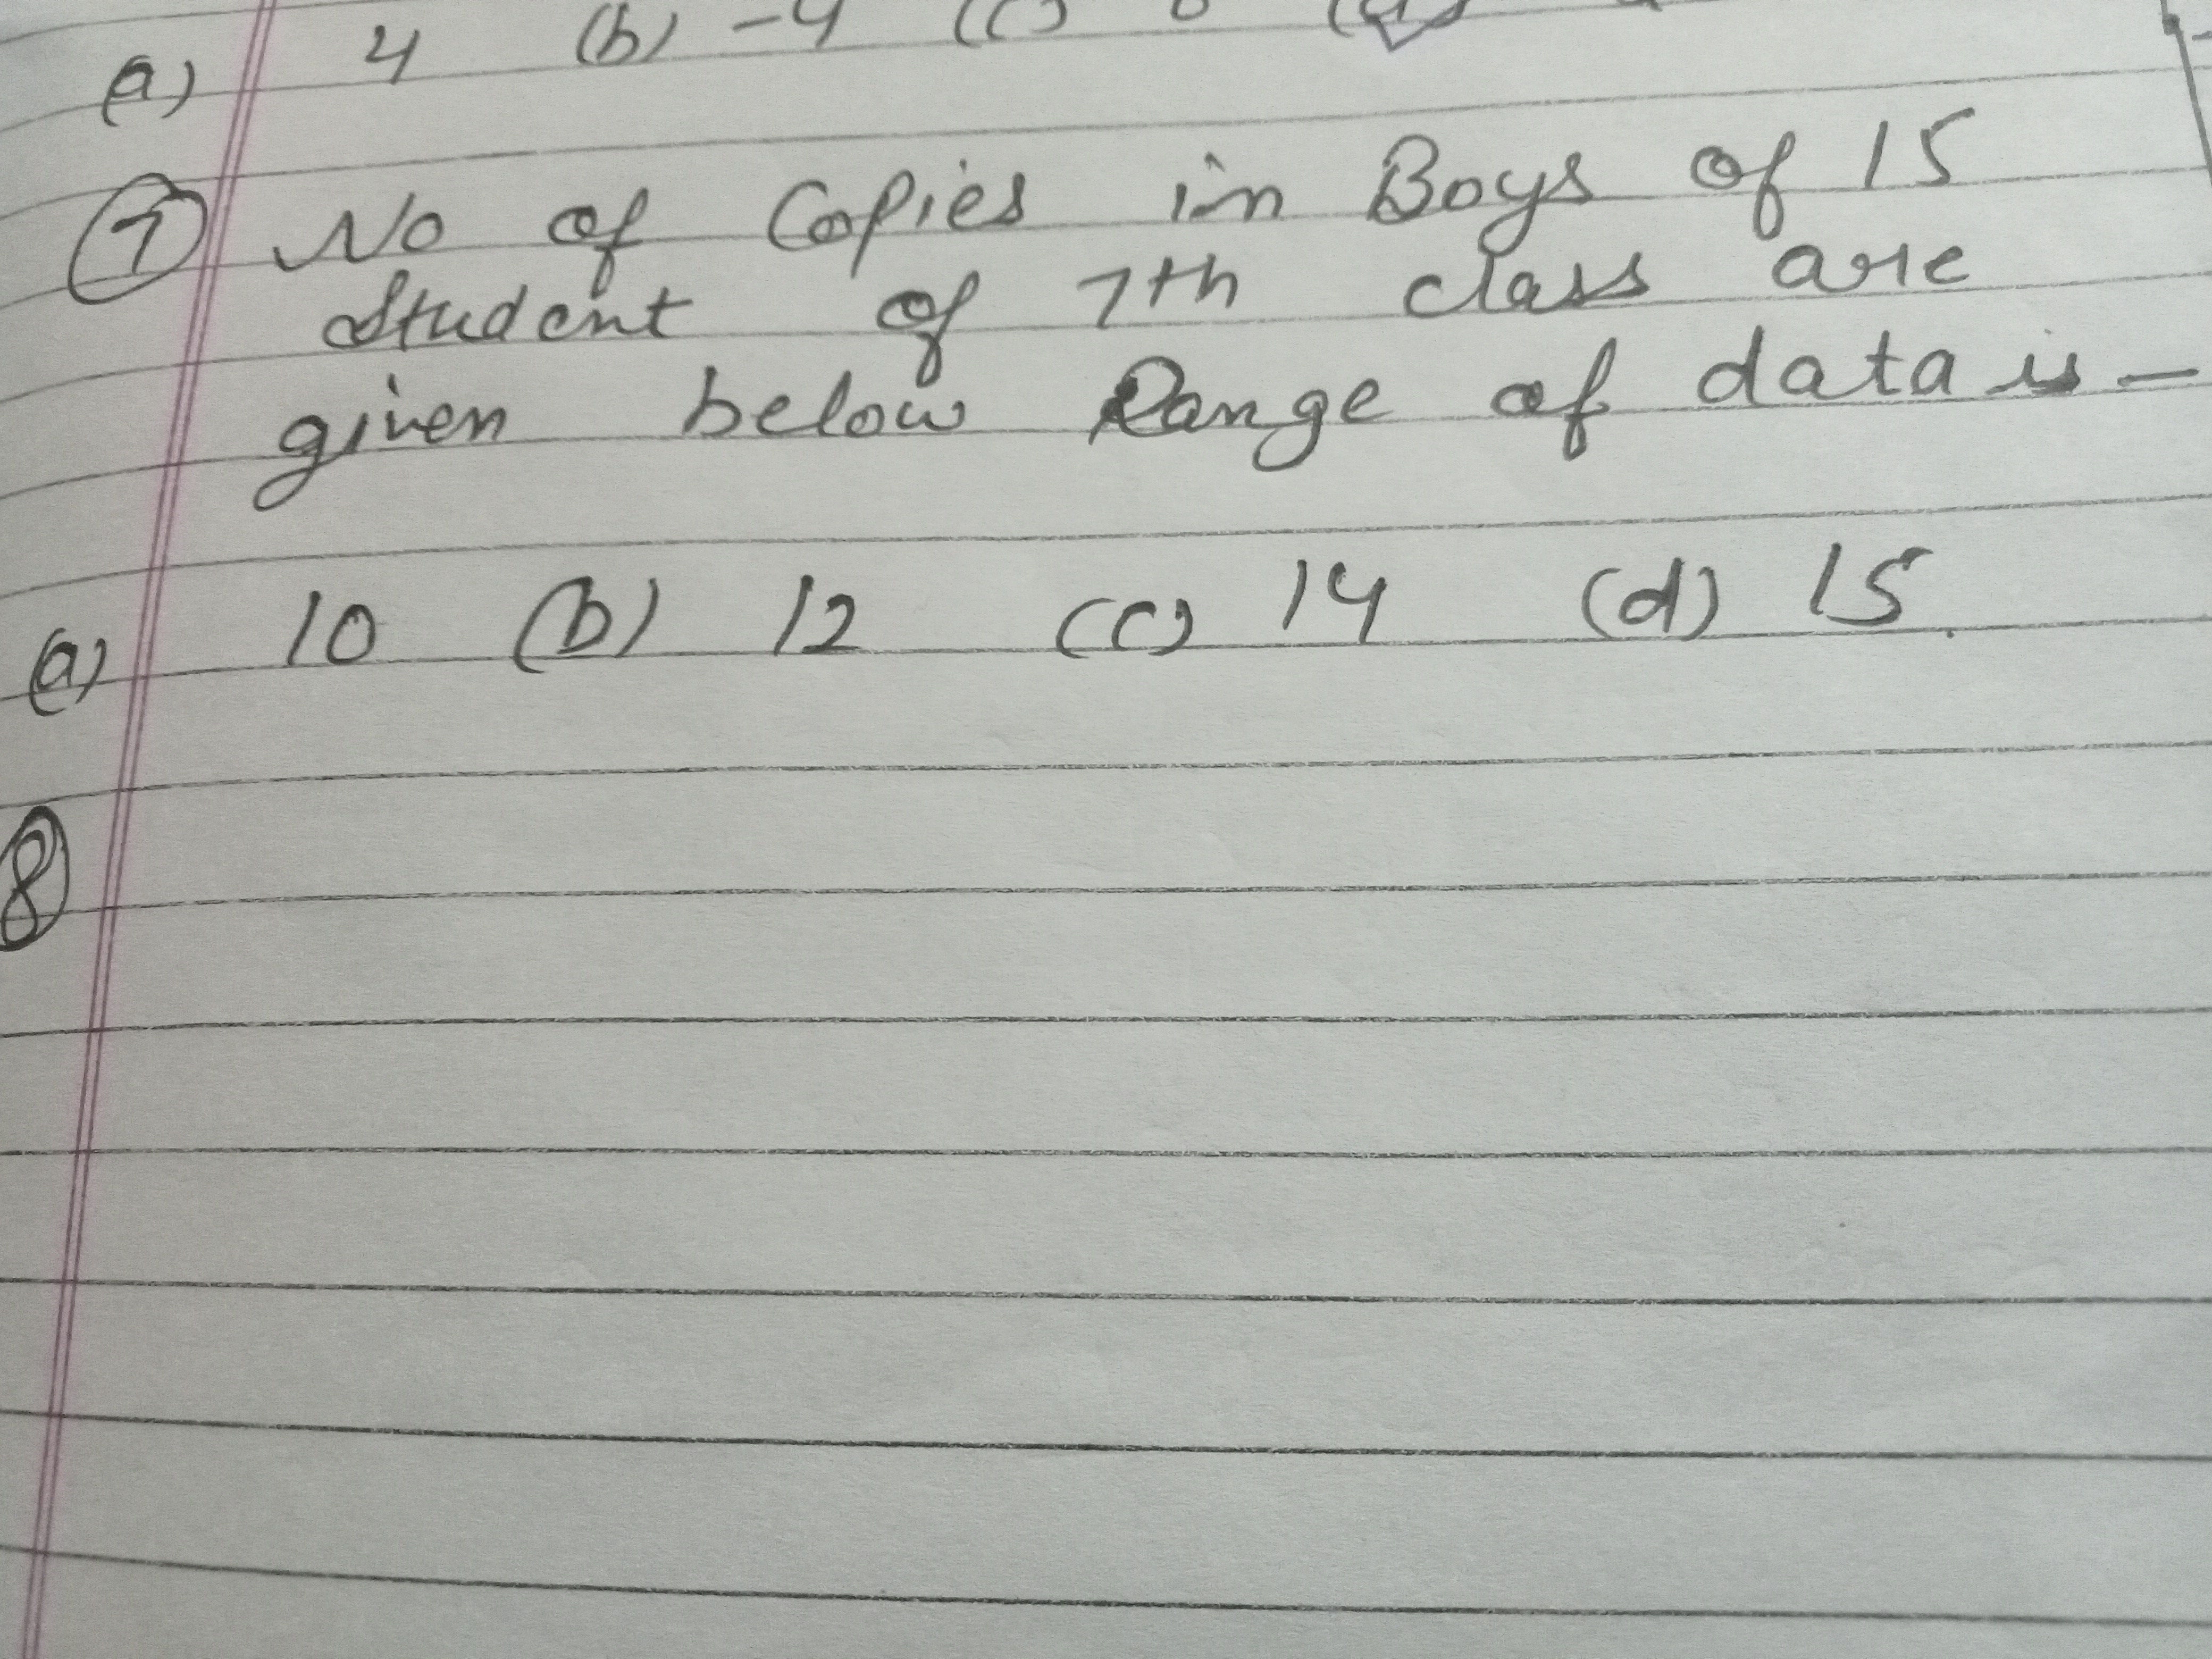 (a) 4 (b) -4 (c)
(7) No of Copies in Boys of 15
Student of 7th class are
given below Range of data is -
(a) 10 (b) 12 (c) 14 (d) 15.
(8)